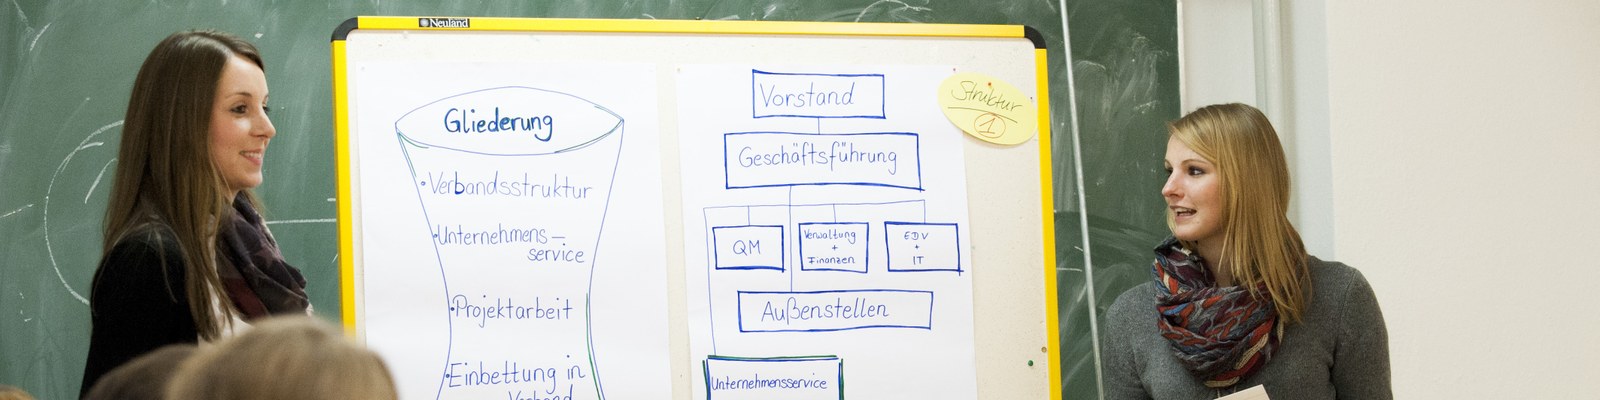 Neuland
Gliederung
• Verbandsstruktur
• Unternehmens –
service
• Projektarbeit
• Einbettung in
Verband
Vorstand
Geschäftsführung
QM
Verwaltung
+
Finanzen
EDV
+
IT
Außenstellen
Unternehmensservice
Struktur
1